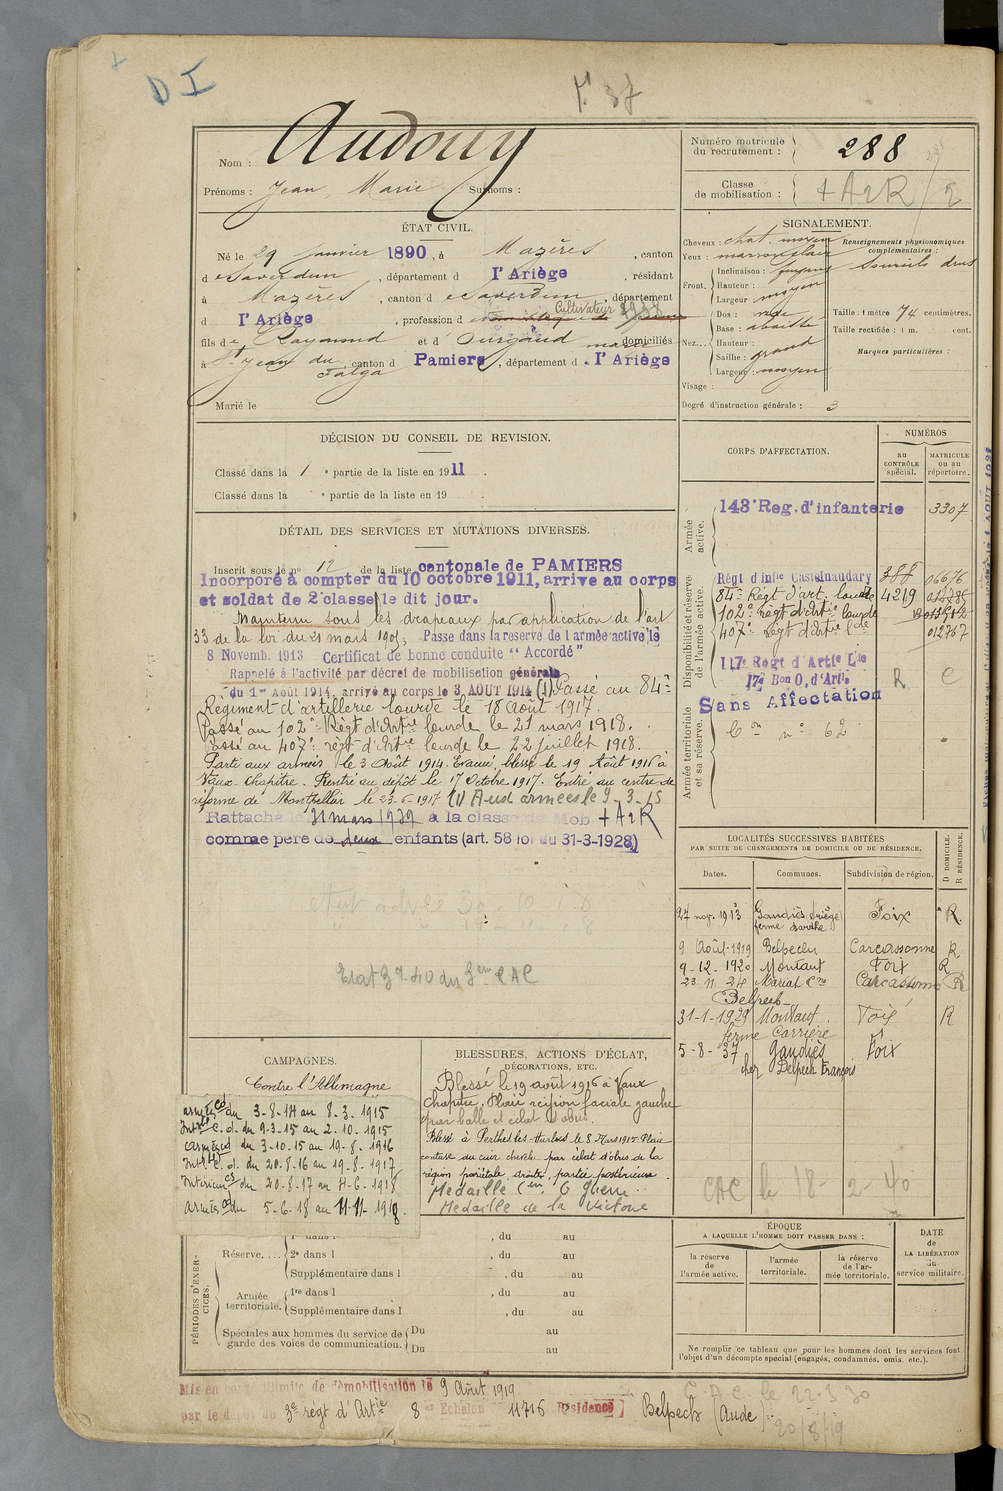 D I
Nom : Audouy
Prénoms : Jean Marie Surnoms :
Numéro matricule
du recrutement : 288
Classe
de mobilisation : + A2R / 2
ÉTAT CIVIL.
Né le 29 janvier 1890, à Mazères, canton
d e Saverdun, département d l'Ariège, résidant
à Mazères, canton d e Saverdun, département
d l'Ariège, profession d Cultivateur
fils de Raymond et d domiciliés
à St Jean du Falga, canton d Pamiers, département d l'Ariège
Marié le
SIGNALEMENT.
Cheveux : chat. moyen
Yeux : marron clair
Front. Inclinaison :
Hauteur : moyen
Largeur :
Nez... Dos :
Base : abaissée
Hauteur :
Saillie : grand
Largeur : moyen
Visage :
Renseignements physionomiques
complémentaires :
Sourcils drus
Taille : 1 mètre 74 centimètres.
Taille rectifiée : 1 m. cent.
Marques particulières :
Degré d'instruction générale : 3
DÉCISION DU CONSEIL DE REVISION.
Classé dans la 1e partie de la liste en 1911.
Classé dans la e partie de la liste en 19 .
DÉTAIL DES SERVICES ET MUTATIONS DIVERSES.
Inscrit sous le no 12 de la liste cantonale de PAMIERS
Incorporé à compter du 10 octobre 1911, arrivé au corps
et soldat de 2e classe le dit jour.
Maintenu sous les drapeaux par application de l'art
33 de la loi du 21 mars 1905. Passé dans la réserve de l'armée active le
8 Novemb. 1913 Certificat de bonne conduite "Accordé"
Rappelé à l'activité par décret de mobilisation générale
du 1er Août 1914, arrivé au corps le 3 AOUT 1914 (1) Passé au 84e
Régiment d'artillerie lourde le 18 août 1917.
Passé au 102e Régt d'Artie lourde le 21 mars 1918.
Passé au 407e régt d'Artie lourde le 22 juillet 1918.
Parti aux armées le 3 Août 1914. Evacué, blessé le 19 Août 1916 à
Vaux Chapitre. Rentré au dépôt le 17 Octobre 1917. Entré au centre de
réforme de Montpellier le 23-6-1917 (1) Aux armées le 9-3-15
Rattaché le 31 mars 1939 à la classe de Mob + A2R
comme père de deux enfants (art. 58 loi du 31-3-1928)
Etat 3 d. 40 du 3em CAC
CORPS D'AFFECTATION.
NUMÉROS
au
CONTRÔLE
spécial.
MATRICULE
ou au
répertoire.
Armée
active.
143e Reg. d'infanterie 3307
Disponibilité et réserve
de l'armée active.
Régt d'infie Castelnaudary 388 06676
84e Régt d'art. lourde 4219
102e régt d'Artie lourde
407e régt d'Artie lde 012767
117e Regt d'Artie Lde
17e Bon O. d'Artie R C
Sans Affectation
Armée territoriale
et sa réserve.
Con no 62
LOCALITÉS SUCCESSIVES HABITÉES
PAR SUITE DE CHANGEMENTS DE DOMICILE OU DE RÉSIDENCE.
D. DOMICILE.
R. RÉSIDENCE.
Dates. Communes. Subdivision de région.
24 nov. 1913 Gaudiès Ariège Foix R.
9 Août-1919 Belpech Carcassonne R
9-12-1920 Montaut Foix R
23.11.24 Mariat Cne Carcassonne R
Belpech
31-1-1929 Montaut Foix R
ferme Carrière
5-8-37 Gaudiès Foix
chez Belpech François
CAC le 18-2-40
CAMPAGNES.
Contre l'Allemagne
armées cd du 3-8-14 au 8-3-1915
Intr c.d. du 9-3-15 au 2-10-1915
armées cd du 3-10-15 au 19-8-1916
Intr c.d. du 20-8-16 au 19-8-1917
Intérieur cs du 20-8-17 au 4-6-1918
armées cd du 5-6-18 au 11-11-1918.
BLESSURES, ACTIONS D'ÉCLAT,
DÉCORATIONS, ETC.
Blessé le 19 août 1916 à Vaux
Chapitre. Plaie région faciale gauche
par balle et éclat d'obus.
Blessé à Perthes les Hurlus le 8 Mars 1915. Plaie
contuse du cuir chevelu par éclat d'obus de la
région pariétale droite, partie postérieure
Médaille Cem. G Guerre
Médaille de la Victoire
PÉRIODES D'EXERCICES.
1re dans l , du au
Réserve.... 2e dans l , du au
Supplémentaire dans l , du au
Armée
territoriale. 1re dans l , du au
Supplémentaire dans l , du au
Spéciales aux hommes du service de
garde des voies de communication. Du au
Du au
ÉPOQUE
A LAQUELLE L'HOMME DOIT PASSER DANS :
la réserve
de
l'armée active.
l'armée
territoriale.
la réserve
de l'ar-
mée territoriale.
DATE
de
LA LIBÉRATION
du
service militaire.
Ne remplir ce tableau que pour les hommes dont les services font
l'objet d'un décompte spécial (engagés, condamnés, omis, etc.).
Mis en congé illimité de démobilisation le 9 Août 1919
par le dépôt du 3e régt d'Artie 8 er Echelon 11716 Résidence Belpech (Aude)
C.A.C le 22-3 30
20/8/19